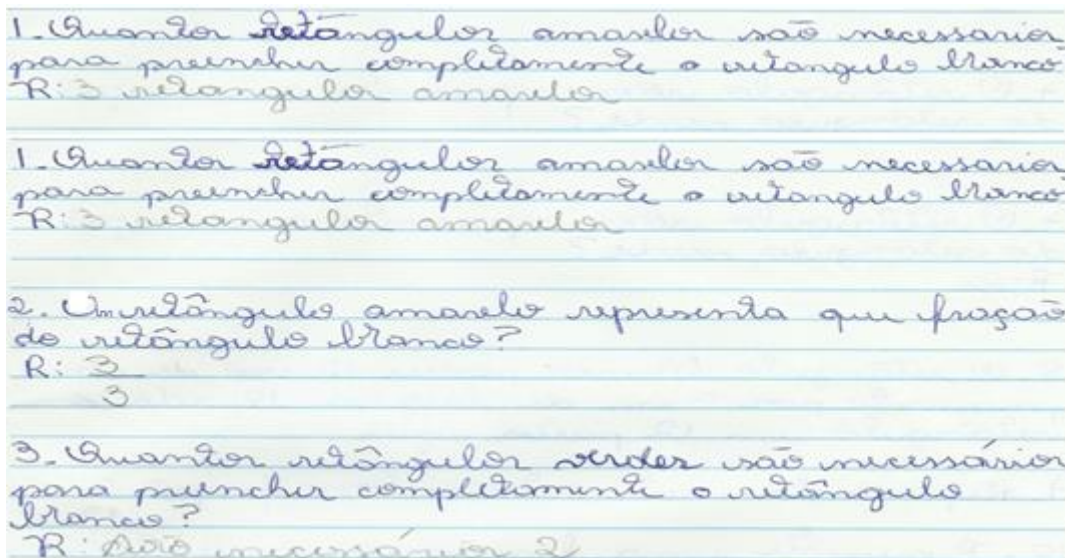 1. Quantos retângulos amarelos são necessarios
para preencher completamente o retangulo branco
R: 3 retangulos amarelos
1. Quantos retângulos amarelos são necessarios
para preencher completamente o retangulo branco
R: 3 retangulos amarelos
2. Um retângulo amarelo representa que fração
do retângulo branco?
R: 3
3
3. Quantos retângulos verdes são necessários
para preencher completamente o retângulo
branco?
R: São necessários 2